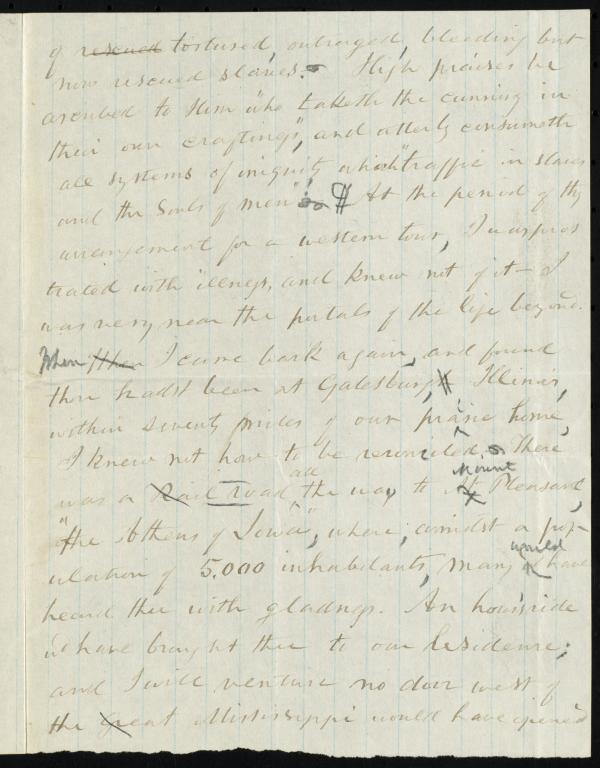 of rescued tortured, outraged, bleeding but
now rescued slaves. High praises be
ascribed to Him "who taketh the cunning in
their own craftiness", and utterly consumeth
all systems of iniquity which "traffic in slaves
and the Souls of men"! ¶ At the period of thy
arrangement for a western tour, I was pros
trated with illness, and knew not of it— I
was very near the portals of the life beyond.
When Then I came back again, and found
thou hadst been at Galesburg, Illinois,
within seventy miles of our prairie home,
I knew not how to be reconciled. There
was a Rail road all the way to Mt Mount Pleasant,
"the Athens of Iowa", where, amidst a pop-
ulation of 5.000 inhabitants, many would have
heard thee with gladness. An hour's ride
w'd have brought thee to our residence;
and I will venture no door west of
the Great Mississippi would have opened